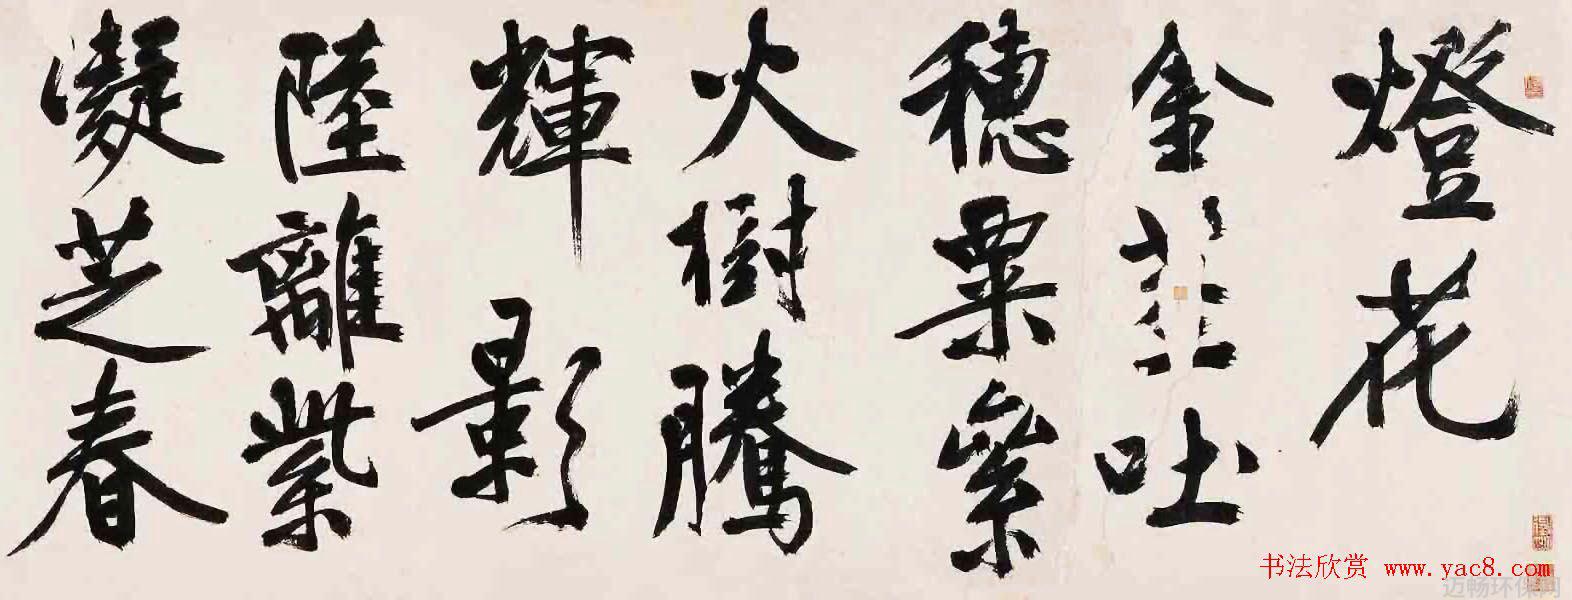 燈花
金韭吐
穗粟絫
火樹騰
輝影
陸離紫
凝芝春
书法欣赏 www.yac8.com
迈畅环保网